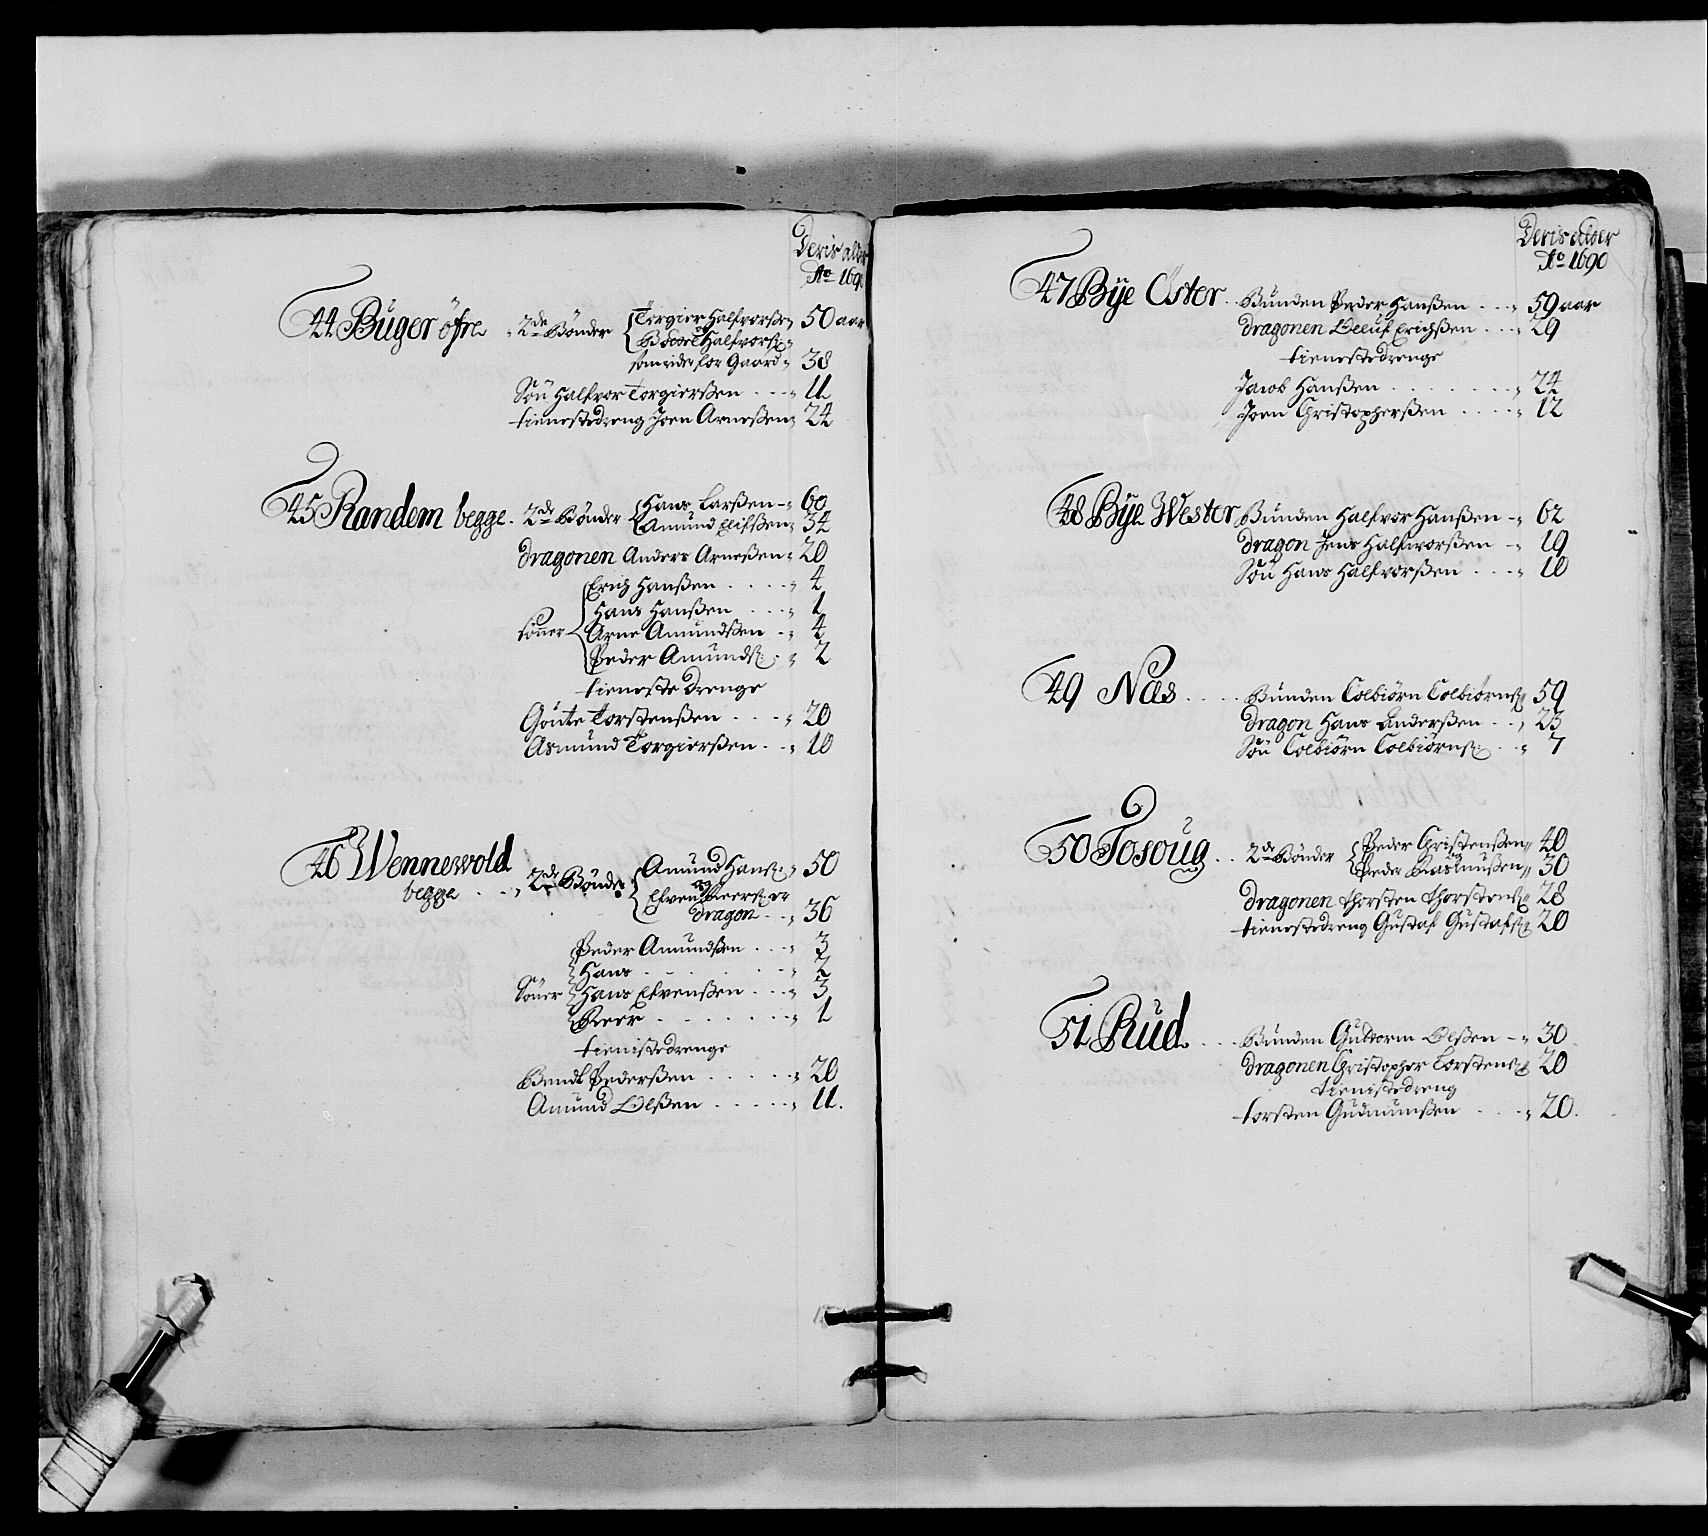 Deris alder
Ao 1690
44 Büger öfre 2de Bönder Torgier Halfvorßen 50 aar
Bodvel Halfvorß:
som rider for Gaard 38
Söñ Halfvor Torgierßen 11
tienestedreng Joen Arneßen 24
45 Randem begge 2de Bönder Hans Larßen 60
Amund Elifßen 34
dragonen Anders Arneßen 20
söner Erich Hanßen 4
Hans Hanßen 1
Arne Amundßen 4
Peder Amundß: 2
tieneste drenge
Goute Torstenßen 20
Asmund Torgierßen 10
46 Wennewold
begge 2de Bönder Amund Hanß: 50
og
Efven Reerß: er
dragon 36
Söner Peder Amundßen 3
Hans 2
Hans Efvenßen 3
Reer 1
tienistedrenge
Bendt Pederßen 20
Amund Olßen 11.
Deris alder
Ao 1690
47 Bÿe Öster Bünden Peder Hanßen 59 aar
dragonen Oluf Erichßen 29
tienestedrenge
Jacob Hanßen 24
Joen Christopherßen 12
48 Bÿe Wester Bünden Halfvor Hanßen 62
dragon Jens Halfvorßen 19
Söñ Hans Halfvorßen 10
49 Næs Bünden Colbiörn Colbiörnß: 59
dragon Hans Anderßen 23
Söñ Colbiörn Colbiörnß: 7
50 Tosoug 2de Bönder Peder Christenßen 40
Peder Rasmußen 30
dragonen Thorsten Thorstenß: 28
tienestedreng Gustaf Gustafß: 20
51 Rüd Bünden Gudtorm Olßen 30
dragonen Christopher Torstenß: 20
tienistedreng
torsten Gudmunßen 20.